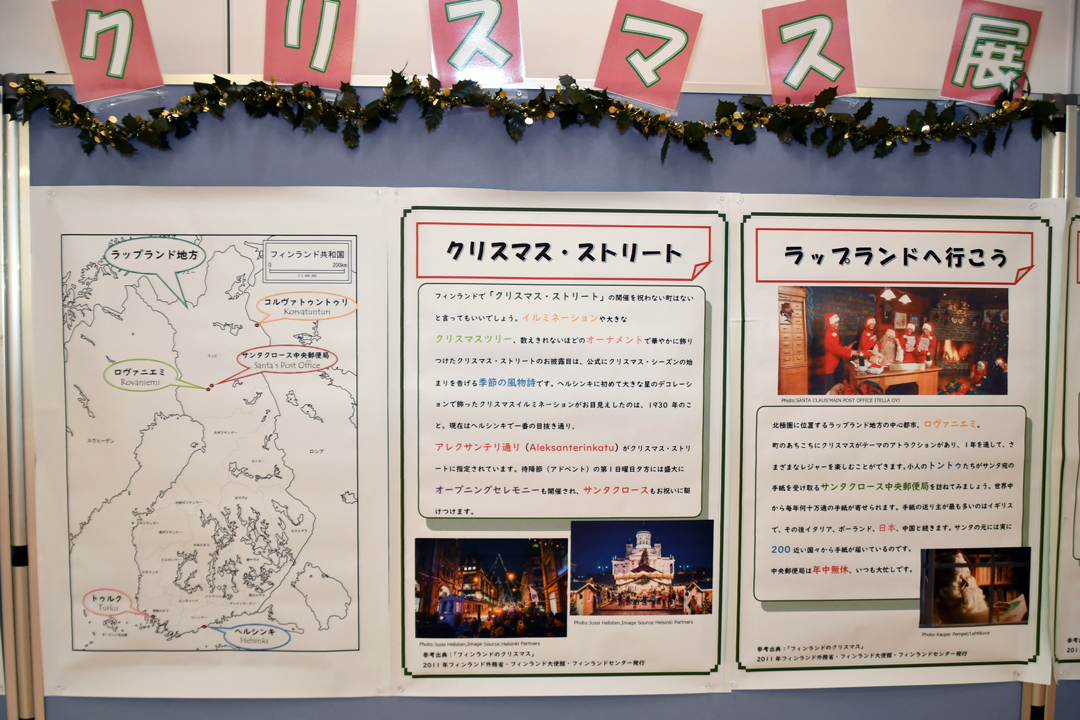 クリスマス展
ラップランド地方
フィンランド共和国
0 200km
コルヴァトゥントゥリ
Korvatunturi
サンタクロース中央郵便局
Santa's Post Office
ロヴァニエミ
Rovaniemi
スウェーデン
ロシア
トゥルク
Turku
ヘルシンキ
Helsinki
クリスマス・ストリート
フィンランドで「クリスマス・ストリート」の開催を祝わない町はない
と言ってもいいでしょう。イルミネーションや大きな
クリスマスツリー、数えきれないほどのオーナメントで華やかに飾り
つけたクリスマス・ストリートのお披露目は、公式にクリスマス・シーズンの始
まりを告げる季節の風物詩です。ヘルシンキに初めて大きな星のデコレーシ
ョンで飾ったクリスマスイルミネーションがお目見えしたのは、1930 年のこ
と。現在はヘルシンキで一番の目抜き通り、
アレクサンテリ通り（Aleksanterinkatu）がクリスマス・ストリ
ートに指定されています。待降節（アドベント）の第1日曜日夕方には盛大に
オープニングセレモニーも開催され、サンタクロースもお祝いに駆
けつけます。
Photo:Jussi Hellsten,Image Source:Helsinki Partners
Photo:Jussi Hellsten,Image Source:Helsinki Partners
参考出典：「フィンランドのクリスマス」
2011年フィンランド外務省・フィンランド大使館・フィンランドセンター発行
ラップランドへ行こう
Photo:SANTA CLAUS'MAIN POST OFFICE ITELLA OYJ
北極圏に位置するラップランド地方の中心都市、ロヴァニエミ。
町のあちこちにクリスマスがテーマのアトラクションがあり、1年を通して、さ
まざまなレジャーを楽しむことができます。小人のトントゥたちがサンタ宛の
手紙を受け取るサンタクロース中央郵便局を訪ねてみましょう。世界中
から毎年何十万通の手紙が寄せられます。手紙の送り主が最も多いのはイギリス
で、その後イタリア、ポーランド、日本、中国と続きます。サンタの元には実に
200 近い国々から手紙が届いているのです。
中央郵便局は年中無休、いつも大忙しです。
Photo Kaspar Pempel/Lehtikuva
参考出典：「フィンランドのクリスマス」
2011年フィンランド外務省・フィンランド大使館・フィンランドセンター発行